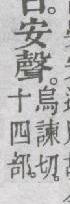 安聲。烏諫切。
十四部。